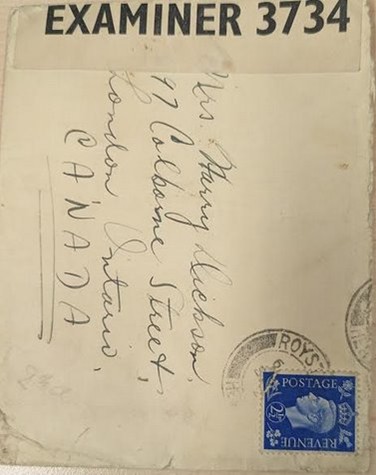 EXAMINER 3734
Mrs. Harry Dickson,
97 Colborne Street,
London Ontario,
CANADA
ROYS
POSTAGE
2½
REVENUE